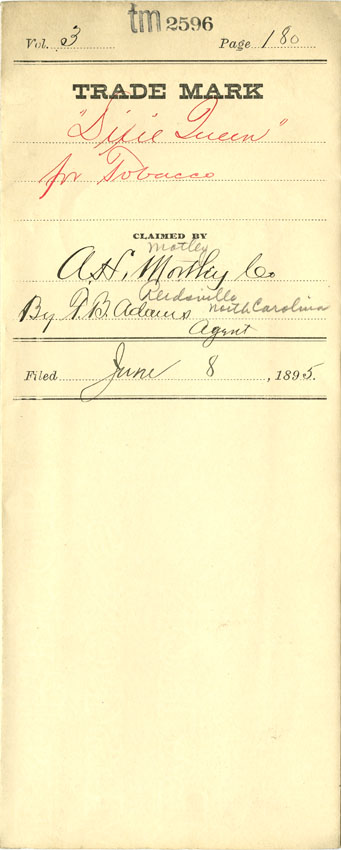 tm 2596
Vol. 3 Page 180
TRADE MARK
"Dixie Queen"
for Tobacco
CLAIMED BY
Motley
A.H. Mortley Co
Reidsville
By F.B. Adams North Carolina
Agent
Filed June 8, 1895.